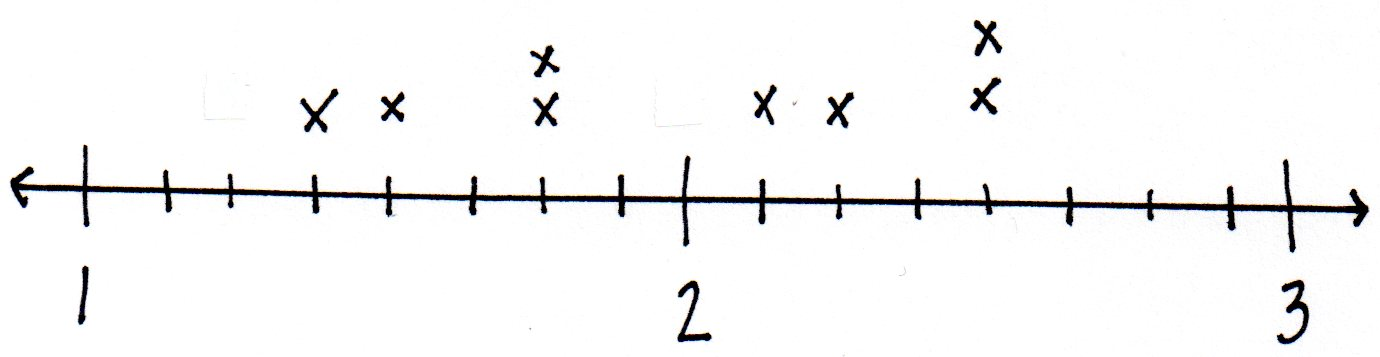 x
x
x x x x x x
1 2 3